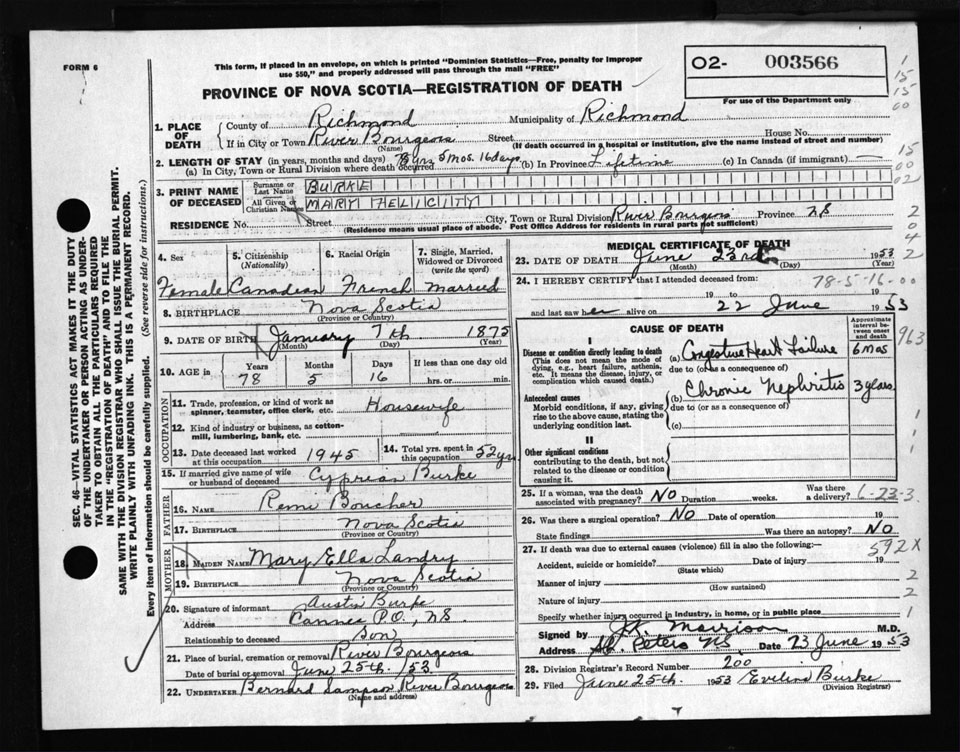 FORM 6
This form, if placed in an envelope, on which is printed "Dominion Statistics—Free, penalty for improper
use $50," and properly addressed will pass through the mail "FREE"
PROVINCE OF NOVA SCOTIA—REGISTRATION OF DEATH
O2- 003566
For use of the Department only
1. PLACE OF DEATH
County of Richmond Municipality of Richmond
If in City or Town River Bourgeois Street House No.
(Name) (If death occurred in a hospital or institution, give the name instead of street and number)
2. LENGTH OF STAY (in years, months and days) 78 yrs 5 Mos. 16 days (b) In Province Lifetime (c) In Canada (if immigrant) —
(a) In City, Town or Rural Division where death occurred
3. PRINT NAME OF DECEASED
Surname or Last Name BURKE
All Given or Christian Names MARY FELICITY
RESIDENCE No. Street City, Town or Rural Division River Bourgeois Province NS
(Residence means usual place of abode. Post Office Address for residents in rural parts not sufficient)
4. Sex
Female
5. Citizenship (Nationality)
Canadian
6. Racial Origin
French
7. Single, Married, Widowed or Divorced (write the word)
Married
8. BIRTHPLACE Nova Scotia
(Province or Country)
9. DATE OF BIRTH January 7th 1875
(Month) (Day) (Year)
10. AGE in Years Months Days If less than one day old
78 5 16 hrs. or min.
OCCUPATION
11. Trade, profession, or kind of work as spinner, teamster, office clerk, etc. Housewife
12. Kind of industry or business, as cotton-mill, lumbering, bank, etc.
13. Date deceased last worked at this occupation 1945
14. Total yrs. spent in this occupation 52 yrs
15. If married give name of wife or husband of deceased Cyprian Burke
FATHER
16. NAME Remi Boucher
17. BIRTHPLACE Nova Scotia
(Province or Country)
MOTHER
18. MAIDEN NAME Mary Ella Landry
19. BIRTHPLACE Nova Scotia
(Province or Country)
20. Signature of informant Austin Burke
Address Cannes P.O., NS.
Relationship to deceased Son
21. Place of burial, cremation or removal River Bourgeois
Date of burial or removal June 25th. /53.
22. UNDERTAKER Bernard Sampson River Bourgeois
(Name and address)
MEDICAL CERTIFICATE OF DEATH
23. DATE OF DEATH June 23rd 1953
(Month) (Day) (Year)
24. I HEREBY CERTIFY that I attended deceased from: 78-5-16-00
19 to 19
and last saw her alive on 22 June 1953
CAUSE OF DEATH
Approximate interval between onset and death
I
Disease or condition directly leading to death (a) Congestive Heart Failure 6 Mos
(This does not mean the mode of dying, e.g., heart failure, asthenia, etc. It means the disease, injury, or complication which caused death.)
due to (or as a consequence of)
Antecedent causes (b) Chronic Nephritis 3 years
Morbid conditions, if any, giving rise to the above cause, stating the underlying condition last.
due to (or as a consequence of)
(c)
II
Other significant conditions
contributing to the death, but not related to the disease or condition causing it.
25. If a woman, was the death associated with pregnancy? NO Duration weeks. Was there a delivery? 6-23-3
26. Was there a surgical operation? NO Date of operation 19
State findings Was there an autopsy? NO
27. If death was due to external causes (violence) fill in also the following:— 592X
Accident, suicide or homicide? Date of injury 19
(State which)
Manner of injury
(How sustained)
Nature of injury
Specify whether injury occurred in industry, in home, or in public place
Signed by Morrison M.D.
Address St. Peters NS Date 23 June 1953
28. Division Registrar's Record Number 200
29. Filed June 25th. 1953 Evelina Burke
(Division Registrar)
SEC. 46—VITAL STATISTICS ACT MAKES IT THE DUTY
OF THE UNDERTAKER OR PERSON ACTING AS UNDER-
TAKER TO OBTAIN ALL THE PARTICULARS REQUIRED
IN THE "REGISTRATION OF DEATH" AND TO FILE THE
SAME WITH THE DIVISION REGISTRAR WHO SHALL ISSUE THE BURIAL PERMIT.
WRITE PLAINLY WITH UNFADING INK. THIS IS A PERMANENT RECORD.
Every item of information should be carefully supplied. (See reverse side for instructions.)
1
15
15
00
15
00
02
2
0
4
2
963
1
1
1
2
2
1